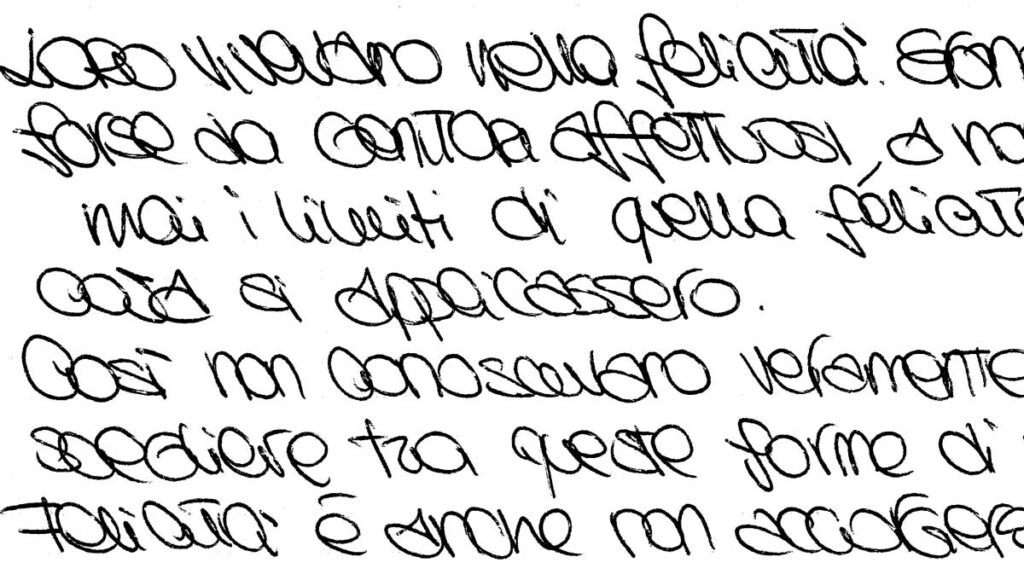 Loro vivevano nella felicità. Eran
forse da genitori affettuosi, a no
mai i limiti di quella felicit
così si appicassero.
Così non conoscevano veramente
scegliere tra queste forme di
Felicità è anche non accorgers